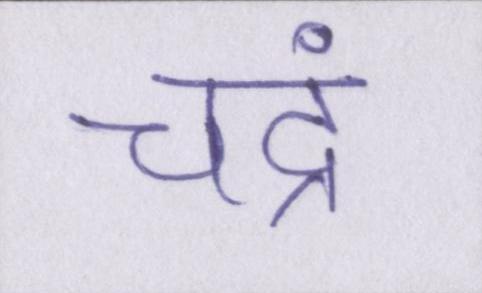 चद्रं